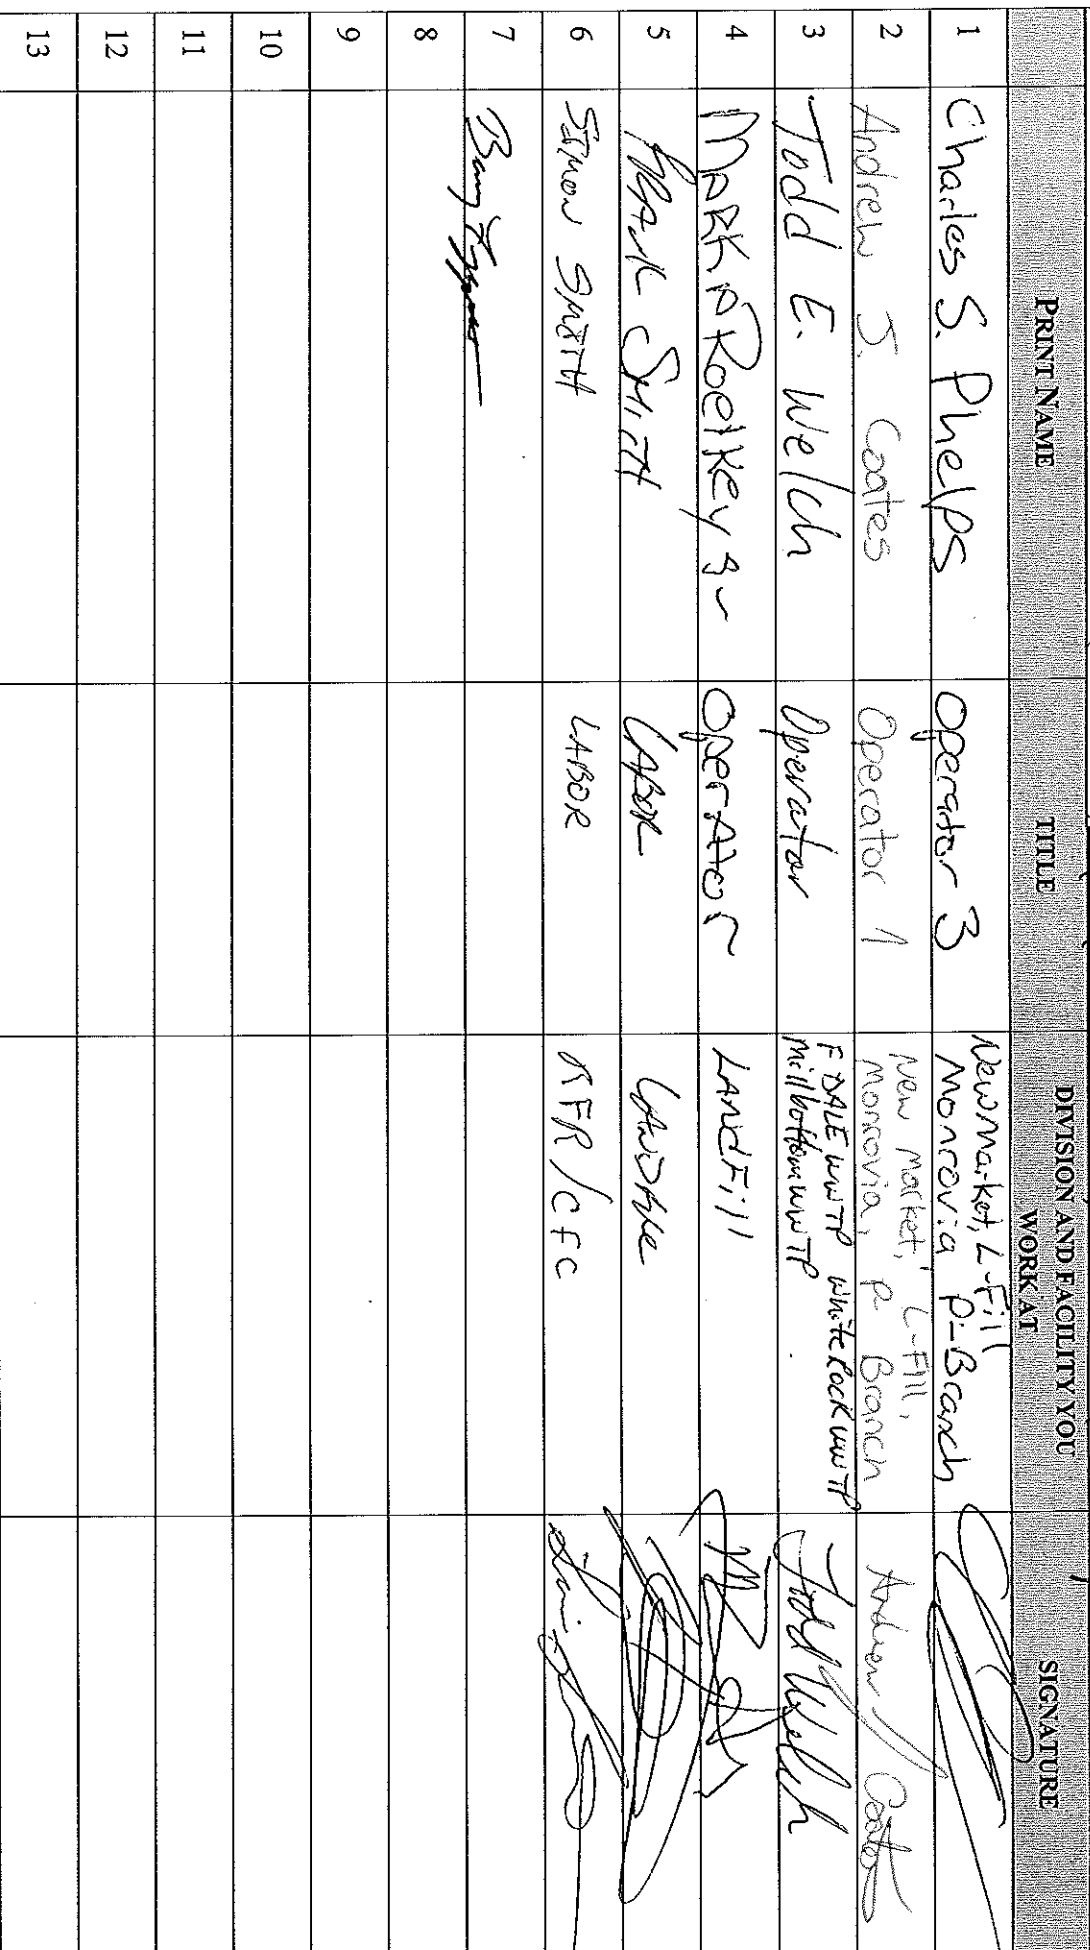 PRINT NAME TITLE DIVISION AND FACILITY YOU WORK AT SIGNATURE
1 Charles S. Phelps Operator 3 New Market, L-Fill Monrovia P-Branch
2 Andrew J. Coates Operator 1 New Market, L-Fill, Monrovia, P Branch Andrew J Coates
3 Todd E. Welch Operator F DALE WWTP White Rock WWTP Mill bottom WWTP Todd Welch
4 MARK A Roelkey Jr Operator LANdFill
5 Smith LABOR
6 SIMON SMITH LABOR /CFC
7 Barry
8
9
10
11
12
13